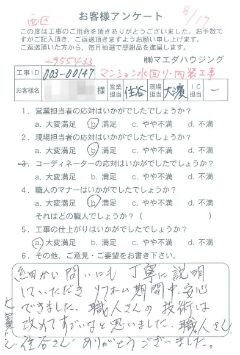 お客様アンケート
8/17
西区
この度は工事のご用命を頂きありがとうございました。お手数で
すがご記入頂き、ご返送頂きますようお願い申し上げます。
ご返送頂いた方から、毎月抽選で感謝品を進呈します。
㈱マエダハウジング
工事ID
203-00147
マンション水回り・内装工事
お客様名
様
営業担当
住吉
現場担当
大賀
IC担当
1. 営業担当者の応対はいかがでしたでしょうか?
a. 大変満足 b. 満足 c. やや不満 d. 不満
2. 現場担当者の応対はいかがでしたでしょうか?
a. 大変満足 b. 満足 c. やや不満 d. 不満
3. コーディネーターの応対はいかがでしたでしょうか?
a. 大変満足 b. 満足 c. やや不満 d. 不満
4. 職人のマナーはいかがでしたでしょうか?
a. 大変満足 b. 満足 c. やや不満 d. 不満
それはどの職人でしょうか?( )
5. 工事の仕上がりはいかがでしたでしょうか?
a. 大変満足 b. 満足 c. やや不満 d. 不満
6. その他、ご意見・ご要望をお書き下さい。
細かい問いにも丁寧に説明
していただきリフォーム期間中、安心
できました。職人さんの技術は
改めてすごいなと思いました。職人さん
住吉さんありがとうございました。